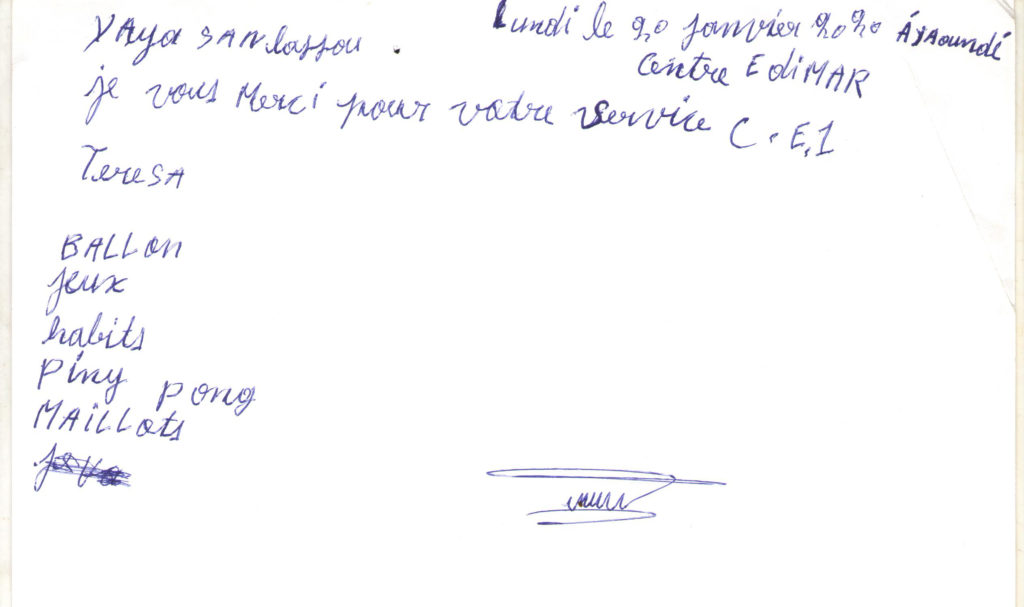 YAya SANlassou.
Lundi le 20 janvier 2020 ÁyAoundé
Centre EdiMAR
je vous Merci pour votre service C.E.1
TereSA
BALLon
jeux
habits
Piny pong
MAiLLots